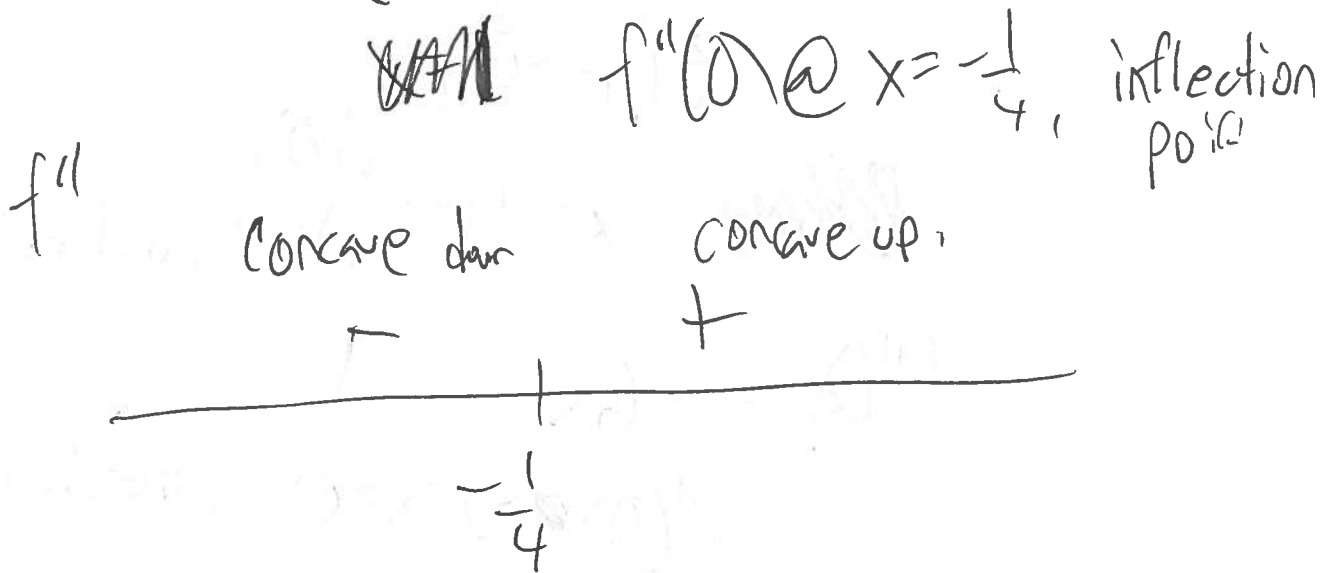 f"(0) @ x = -1/4, inflection
point
f"
concave down concave up.
- +
-1/4